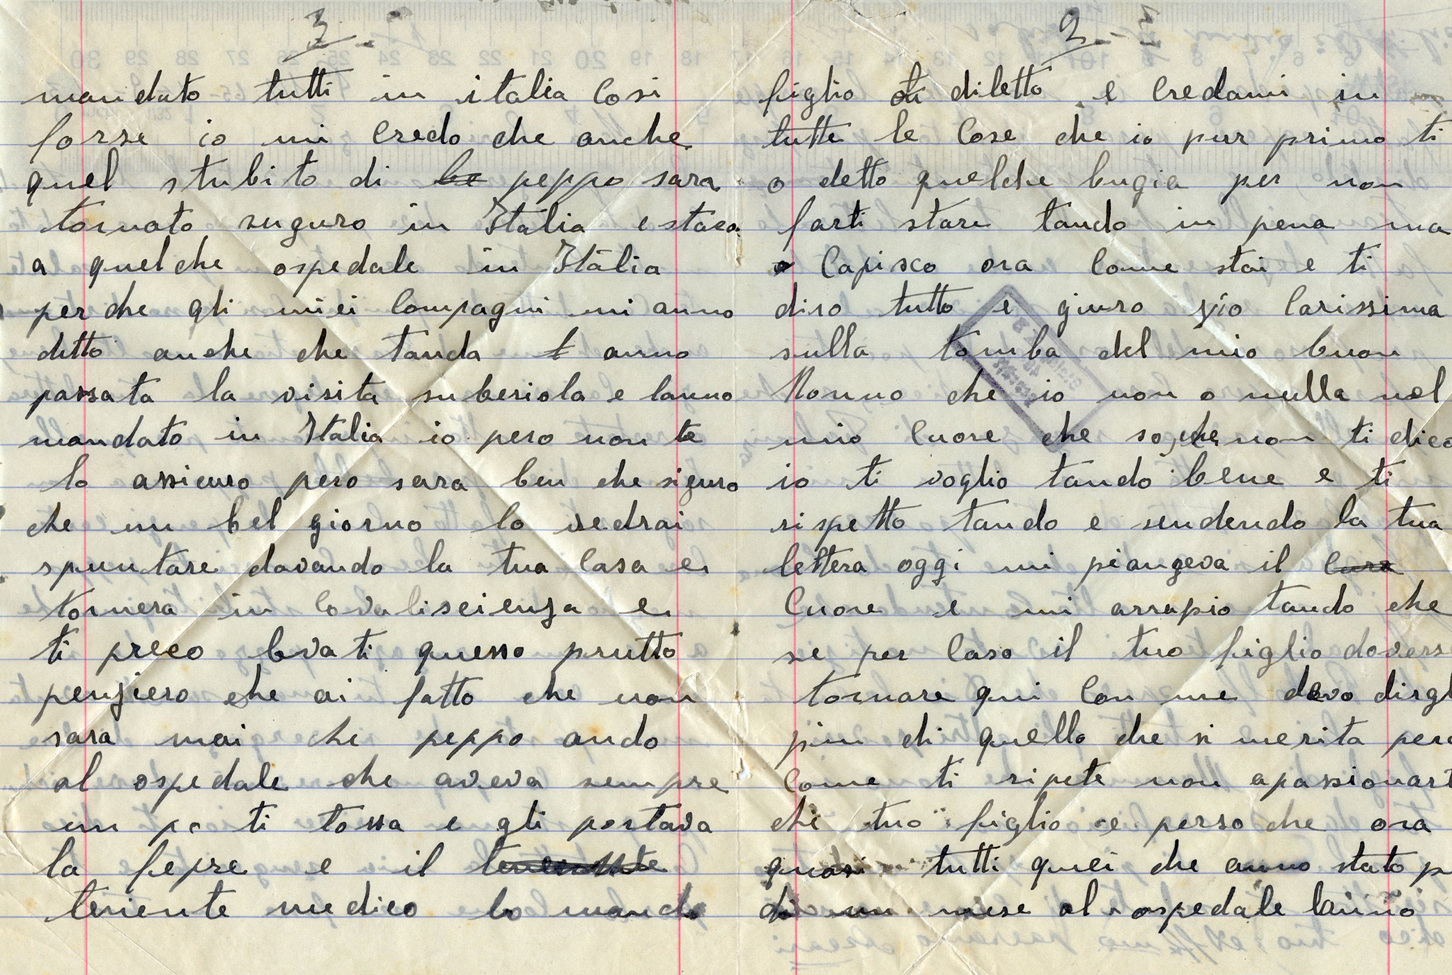 2.
figlio di diletto e Credami in
tutte le Cose che io pur primo ti
o detto quelche bugia per non
farti stare tando in pena ma
Capisco ora Come stai e ti
diro tutto e giuro zio Carissima
sulla tomba del mio buon
Nonno che io non o nulla nel
mio Cuore che so, che non ti dico
io ti voglio tando bene e ti
rispetto tando e sendendo la tua
lettera oggi mi piangeva il
Cuore e mi arrapio tando che
se per Caso il tuo figlio dovers
tornare qui Con me devo dirgl
piu di quello che si merita pero
Come ti ripete non apassionart
che tuo figlio e perso che ora
quasi tutti quei che anno stato p
di un mese al ospedale lanno
3.
mandato tutti in italia Cosi
forse io mi Credo che anche
quel stubito di peppo sara
tornato suguro in Italia e stara
a quelche ospedale in Italia
perche gli miei Compagni mi anno
ditto anche che tanda anno
passata la visita subesiola e lanno
mandato in Italia io pero non te
lo assicuro pero sara ben che siguro
che un bel giorno lo vedrai
spuntare davando la tua Casa e
tornera in Covalisciensa e
ti preco levati quesso prutto
penziero che ai fatto che non
sara mai che peppo ando
al ospedale che aveva sempre
un po ti tossa e gli portava
la fepre e il
teniente medico lo mando